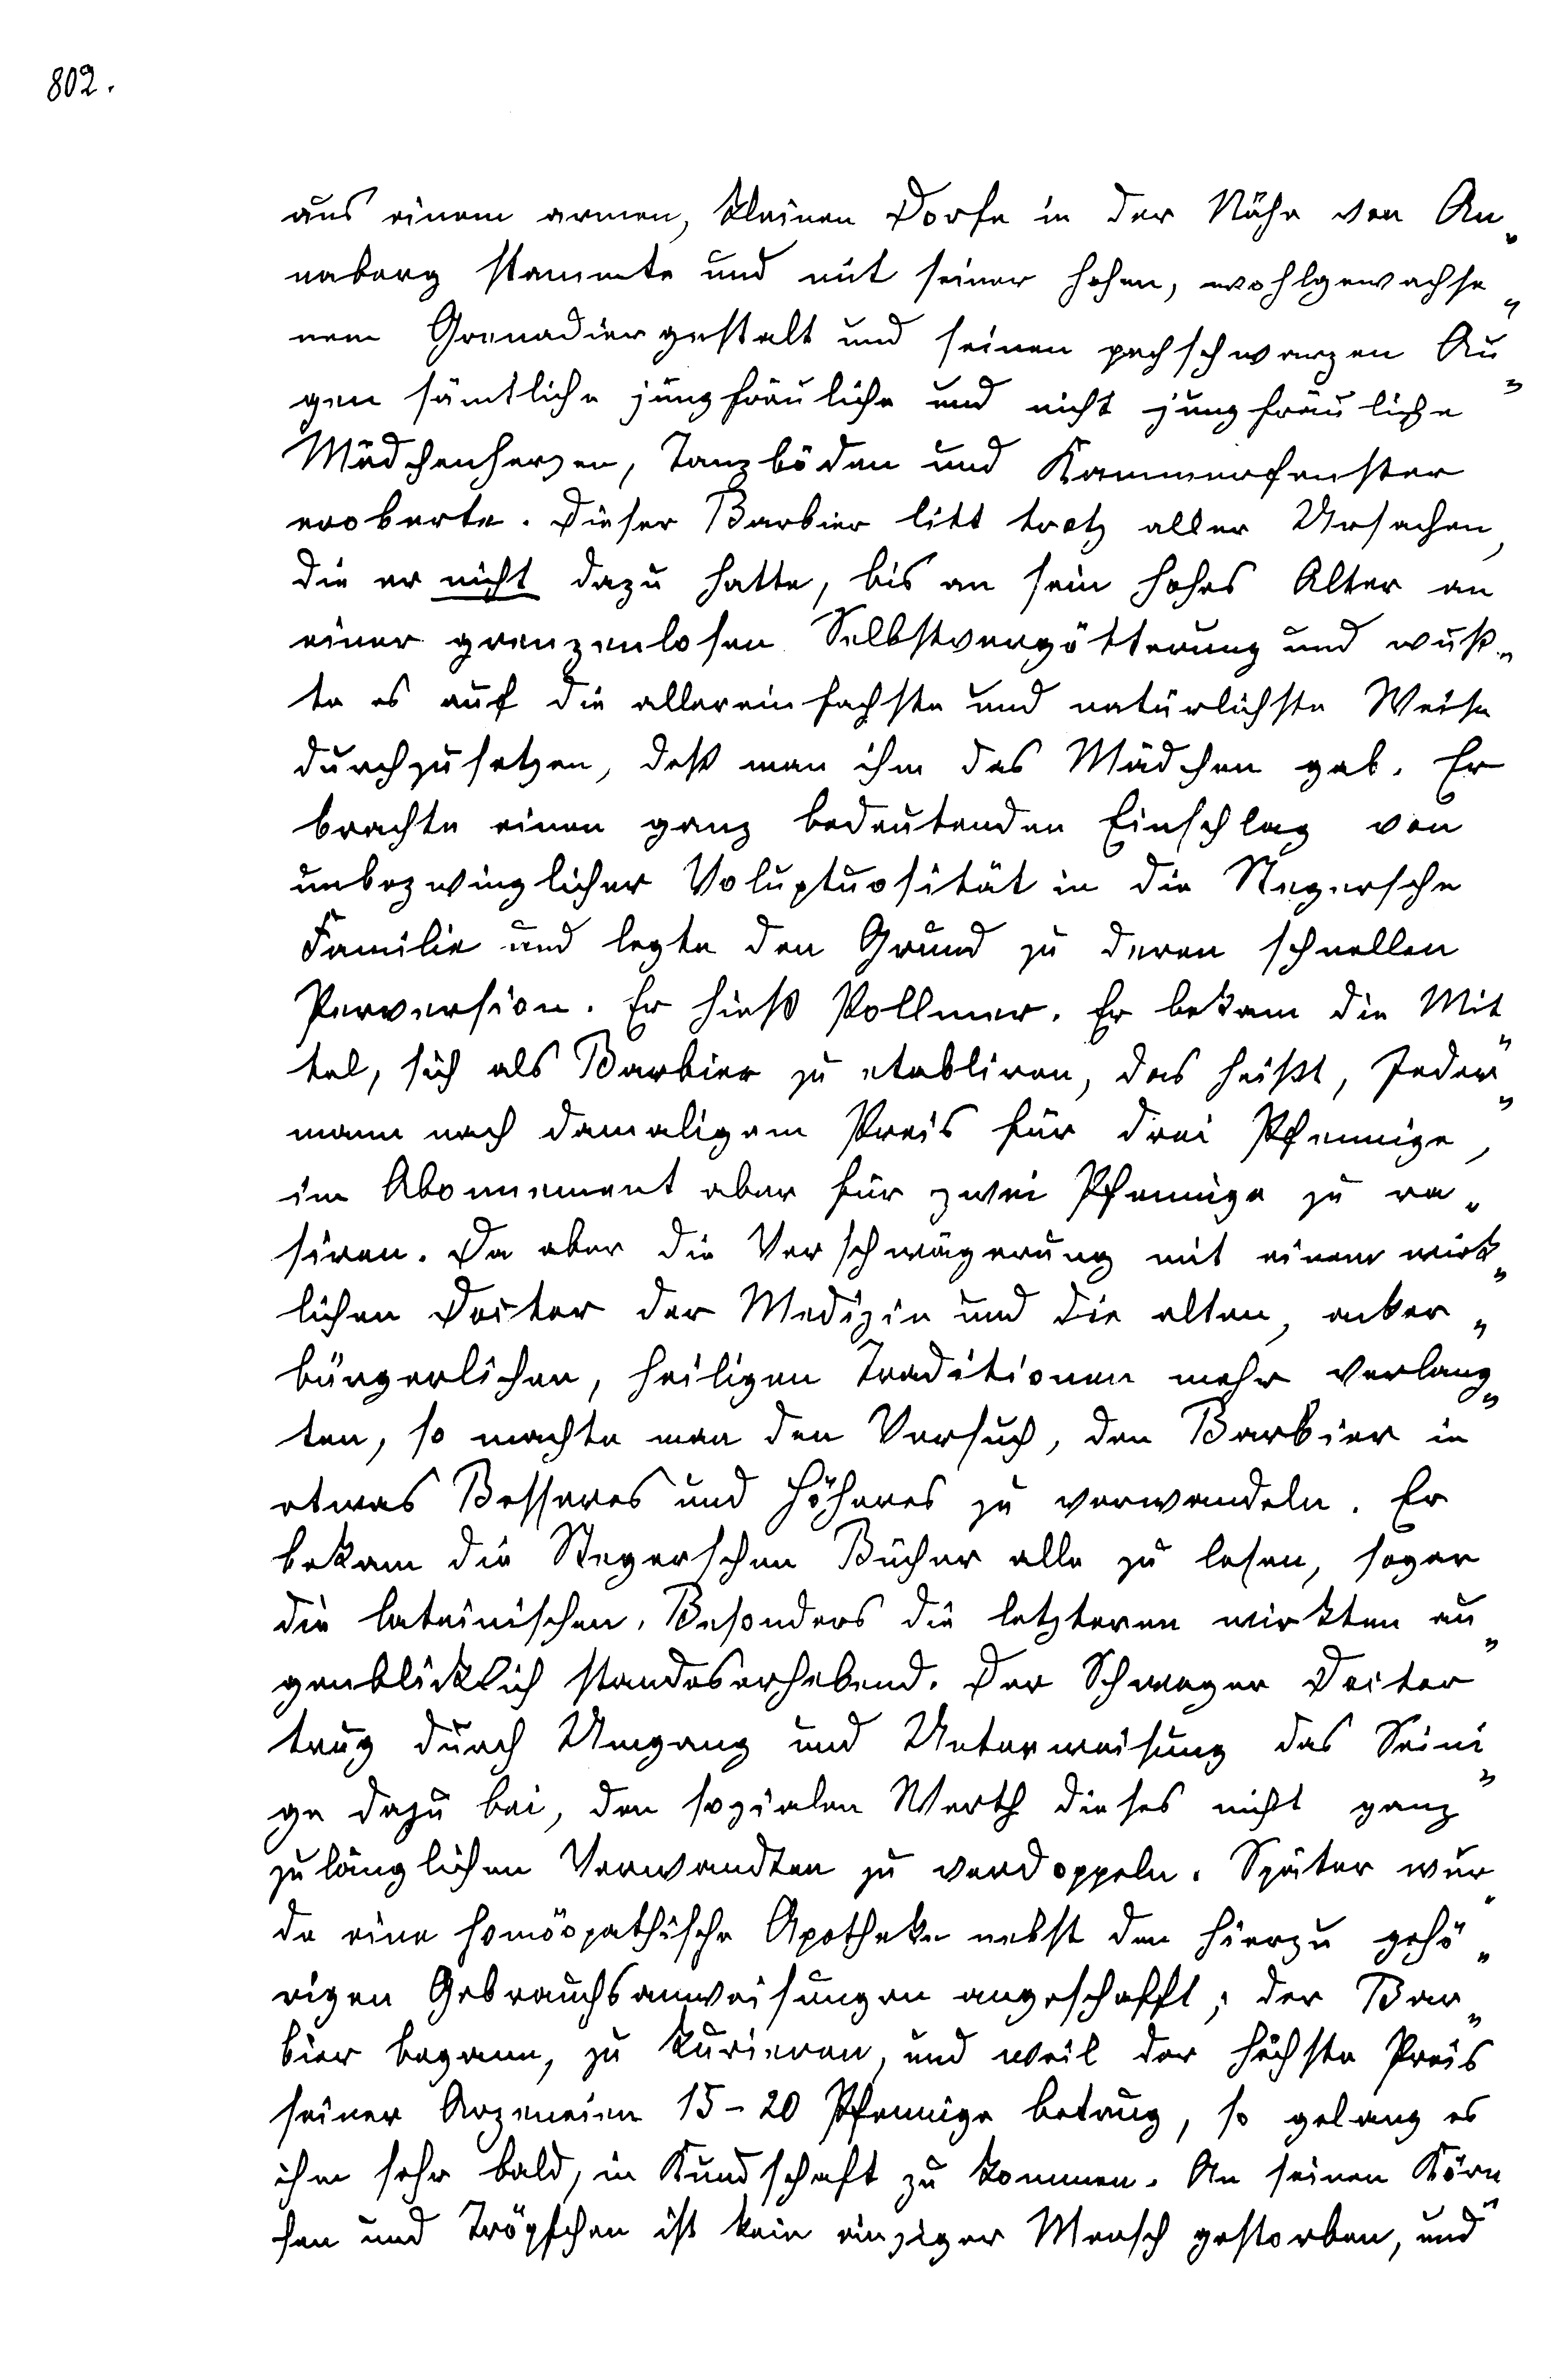 802.
aus einem armen, kleinen Dorfe in der Nähe von An„
naberg stammte und mit seiner hohen, wohlgewachse„
nem Grenadiergestalt und seinen pechschwarzen Au„
gen sämtliche jungfräuliche und nicht jungfräuliche
Mädchenherzen, Tanzböden und Kammerfenster
eroberte. Dieser Barbier litt trotz aller Ursachen,
die er nicht dazu hatte, bis an sein hohes Alter an
einer grenzenlosen Selbstvergötterung und wuß„
te es auf die allereinfachste und natürlichste Weise
durchzusetzen, daß man ihm das Mädchen gab. Er
brachte einen ganz bedeutenden Einschlag von
unbezwinglicher Voluptuosität in die Stegersche
Familie und legte den Grund zu deren schnellen
Perversion. Er hieß Pollmer. Er bekam die Mit„
tel, sich als Barbier zu etabliren, das heißt, Jeder„
mann nach damaligem Preis für drei Pfennige,
im Abonnement aber für zwei Pfennige zu ra„
siren. Da aber die Verschwägerung mit einem wirk„
lichen Doctor der Medizin und die alten, acker„
bürgerlichen, heiligen Traditionen mehr verlang„
ten, so machte man den Versuch, den Barbier in
etwas Besseres und Höheres zu verwandeln. Er
bekam die Stegerschen Bücher alle zu lesen, sogar
die lateinischen. Besonders die letzteren wirkten au„
genblicklich standeserhebend. Der Schwager Doctor
trug durch Umgang und Unterweisung das Seini„
ge dazu bei, den sozialen Werth dieses nicht ganz
zulänglichen Verwandten zu verdoppeln. Später wur„
de eine homöopathische Apotheke nebst den hierzu gehö„
rigen Gebrauchsanweisungen angeschafft; der Bar„
bier begann, zu kurieren, und weil der höchste Preis
seiner Arzeneien 15-20 Pfennige betrug, so gelang es
ihm sehr bald, in Kundschaft zu kommen. An seinen Körn„
chen und Tröpfchen ist kein einziger Mensch gestorben, und